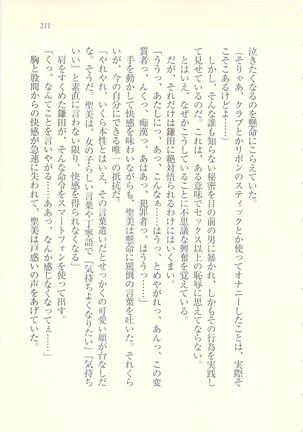 211
泣きたくなるのを懸命にこらえていた。
(そりゃあ、クラブとかリボンのスティックとか使ってオナニーしたことは、実際そ
こそこあるけどよ……)
しかし、そんな誰も知らない秘密を目の前の男に暴かれ、しかもその行為を実践し
て見せているのだ。これは、ある意味でセックス以上の恥辱に思えてならない。
とはいえ、なぜかこうしていることに不思議な興奮を覚えている。
それだけは鎌田に絶対悟られるわけにはいくまい。
「ううっ、あたしにっ、あっ、こんなぁ……はうっ、とめやがれっ、あんっ、この変
質者っ、んくっ、痴漢っ、あはあっ、犯罪者っ、はううっ……」
手を動かして快感を味わいながらも、聖美は懸命に罵倒の言葉を吐いた。それくら
いが、今の自分にできる唯一の抵抗だ。
「やれやれ、いくら本性とはいえ、その言葉遣いだとせっかくの可愛い顔が台なしだ
な。そうだ。聖美は、女の子らしい言葉や丁寧語で『気持ちよくなりたい』『気持ち
いい』と素直に言わない限り、快感を得られなくなる」
肩をすくめた鎌田が、そんな命令をスマートフォンを使って出す。
「くっ、なんてことを言いやがる……ああっ、なんか感じなくなってぇ……」
胸と股間からの快感が急速に失われて、聖美は戸惑いの声をあげていた。